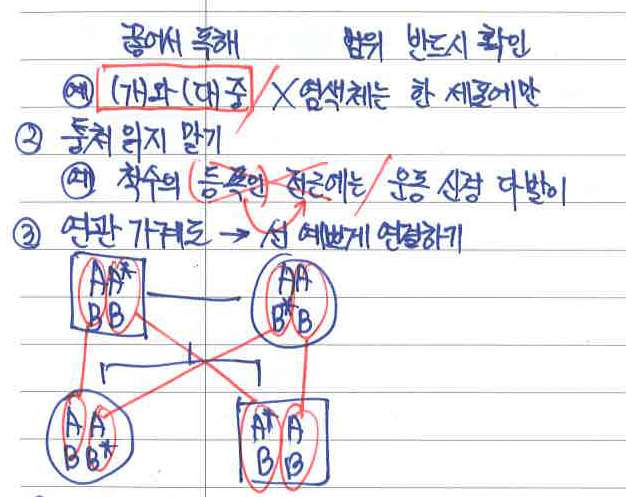 끊어서 독해 범위 반드시 확인
예 (가)와 (나) 중 / X염색체는 한 세포에만
② 뭉쳐 읽지 말기
예 척수의 (등쪽인) 전근에는 / 운동 신경 다발이
③ 연관 가계도 → 선 예쁘게 연결하기
A A* A A
B B B* B
A A A* A
B B* B B